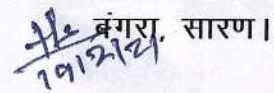 बंगरा, सारण।
19/2/21